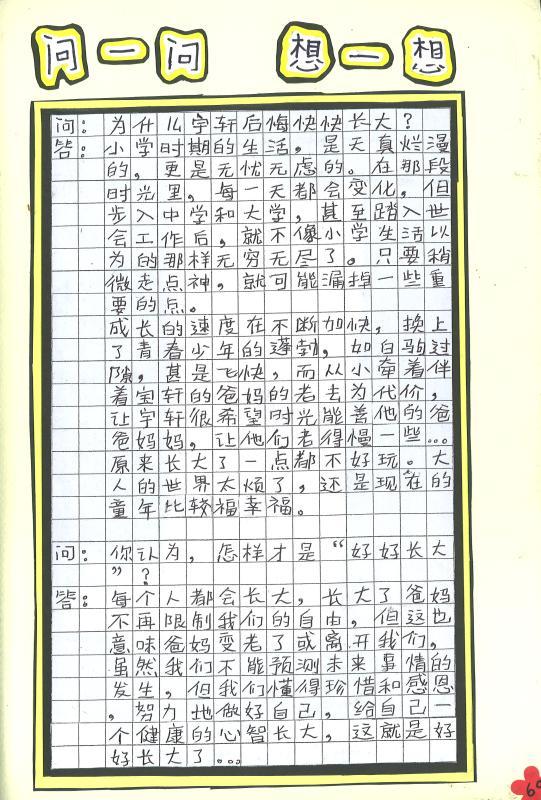 问一问 想一想
问：为什么宇轩后悔快快长大？
答：小学时期的生活，是天真烂漫
的，更是无忧无虑的。在那段
时光里，每一天都会变化，但
步入中学和大学，甚至踏入世
会工作后，就不像小学生活以
为的那样无穷无尽了。只要稍
微走点神，就可能漏掉一些重
要的点。
成长的速度在不断加快，换上
了青春少年的蓬勃，如白驹过
隙，甚是飞快，而从小牵着伴
着宝轩的爸妈的老去为代价，
让宇轩很希望时光能善他的爸
爸妈妈，让他们老得慢一些…
原来长大了一点都不好玩。大
人的世界太烦了，还是现在的
童年比较福幸福。
问：你认为，怎样才是“好好长大
”？
答：每个人都会长大，长大了爸妈
不再限制我们的自由，但这也
意味爸妈变老了或离开我们，
虽然我们不能预测未来事情的
发生，但我们懂得珍惜和感恩
，努力地做好自己，给自己一
个健康的心智长大，这就是好
好长大了…